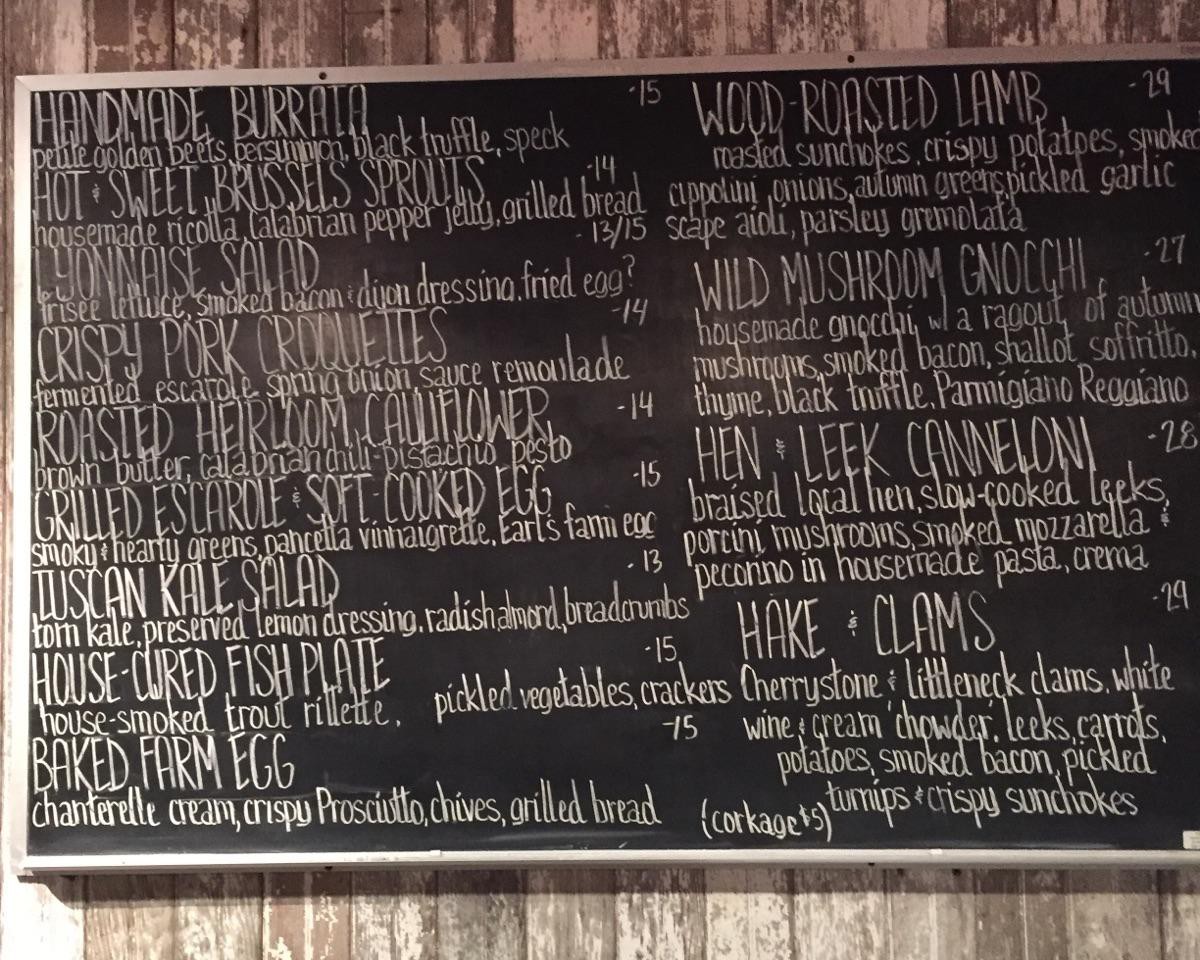 HANDMADE BURRATA -15
petite golden beets, persimmon, black truffle, speck
HOT & SWEET BRUSSELS SPROUTS -14
housemade ricotta, Calabrian pepper jelly, grilled bread
LYONNAISE SALAD - 13/15
frisée lettuce, smoked bacon & dijon dressing, fried egg?
CRISPY PORK CROQUETTES -14
fermented escarole, spring onion, sauce remoulade
ROASTED HEIRLOOM CAULIFLOWER -14
brown butter, calabrian chili-pistachio pesto
GRILLED ESCAROLE & SOFT-COOKED EGG -15
smoky & hearty greens, pancetta vinnaigrette, Earl's farm egg
TUSCAN KALE SALAD - 13
torn kale, preserved lemon dressing, radish, almond, breadcrumbs
HOUSE-CURED FISH PLATE -15
house-smoked trout rillette, pickled vegetables, crackers
BAKED FARM EGG -15
chanterelle cream, crispy Prosciutto, chives, grilled bread
WOOD-ROASTED LAMB -29
roasted sunchokes, crispy potatoes, smoked
cippolini onions, autumn greens, pickled garlic
scape aioli, parsley gremolata
WILD MUSHROOM GNOCCHI -27
housemade gnocchi w/ a ragout of autumn
mushrooms, smoked bacon, shallot soffritto,
thyme, black truffle, Parmigiano Reggiano
HEN & LEEK CANNELONI -28
braised local hen, slow-cooked leeks,
porcini mushrooms, smoked mozzarella &
pecorino in housemade pasta, crema
HAKE & CLAMS -29
Cherrystone & littleneck clams, white
wine & cream 'chowder', leeks, carrots,
potatoes, smoked bacon, pickled
turnips & crispy sunchokes
(corkage $5)